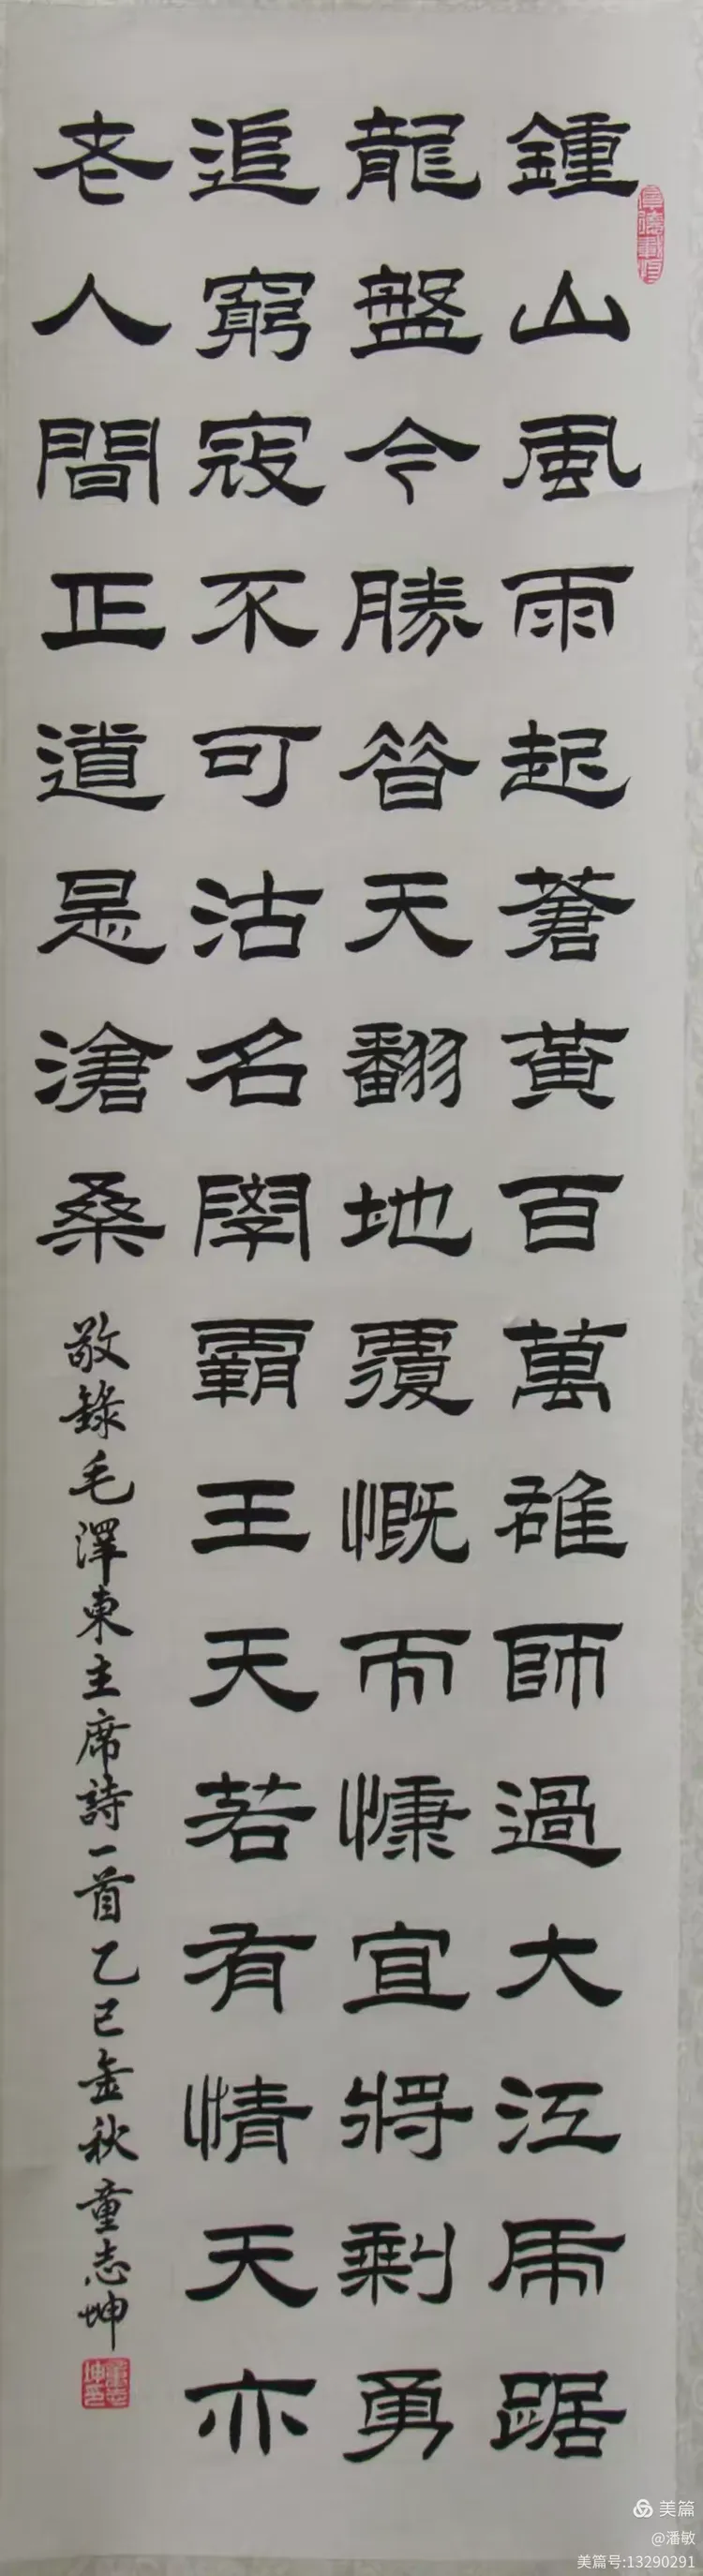 鍾山風雨起蒼黃百萬雄師過大江虎踞
龍盤今勝昔天翻地覆慨而慷宜將剩勇
追窮寇不可沽名學霸王天若有情天亦
老人間正道是滄桑
敬錄毛澤東主席詩一首乙巳金秋童志坤
童志坤印
美篇
@潘敏
美篇号:13290291